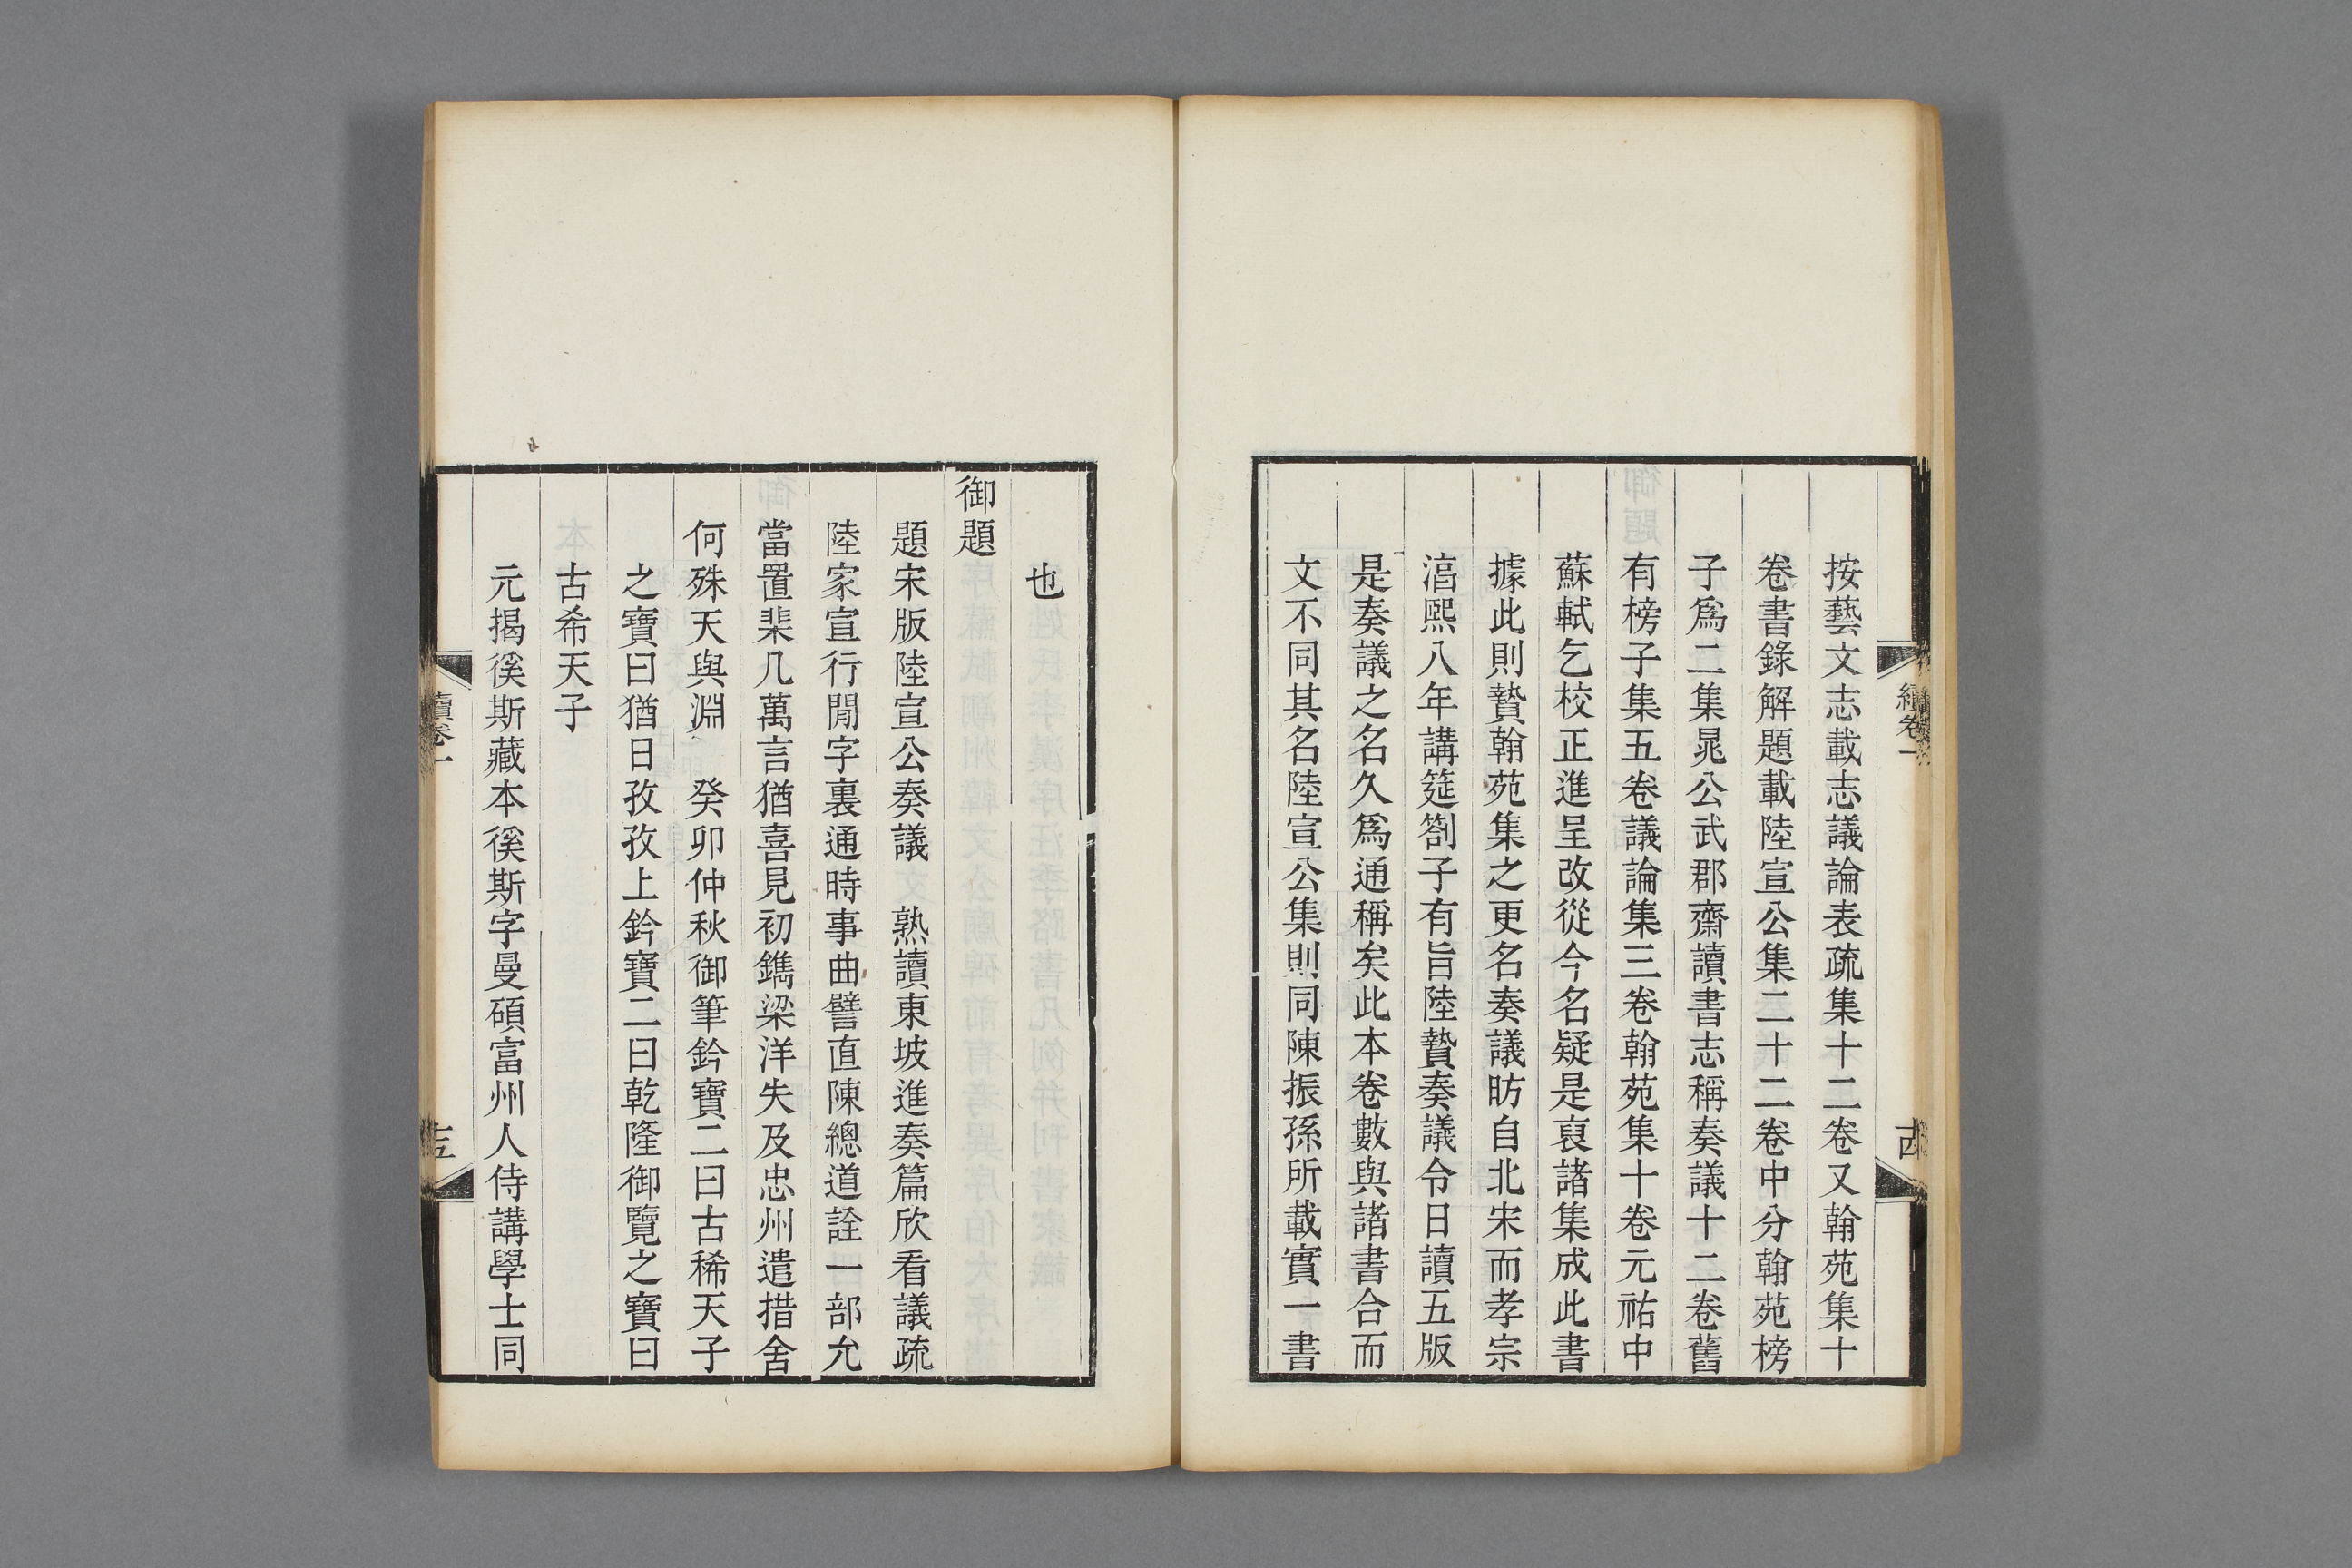 按藝文志載志議論表疏集十二卷又翰苑集十
卷書錄解題載陸宣公集二十二卷中分翰苑榜
子爲二集晁公武郡齋讀書志稱奏議十二卷舊
有榜子集五卷議論集三卷翰苑集十卷元祐中
蘇軾乞校正進呈改從今名疑是裒諸集成此書
據此則贄翰苑集之更名奏議昉自北宋而孝宗
淳熙八年講筵劄子有旨陸贄奏議令日讀五版
是奏議之名久爲通稱矣此本卷數與諸書合而
文不同其名陸宣公集則同陳振孫所載實一書
續卷一
十四
也
御題
題宋版陸宣公奏議　熟讀東坡進奏篇欣看議疏
陸家宣行閒字裏通時事曲譬直陳總道詮一部允
當置棐几萬言猶喜見初鐫梁洋失及忠州遣措舍
何殊天與淵　癸卯仲秋御筆鈐寶二曰古稀天子
之寶曰猶日孜孜上鈐寶二曰乾隆御覽之寶曰
古希天子
元揭徯斯藏本徯斯字曼碩富州人侍講學士同
續卷一
十五